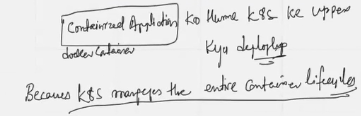 Containerized Application Ko Humne K8S Ke uppar
docker Container
Kyu deploy
Because K8S manages the entire Container lifecycles